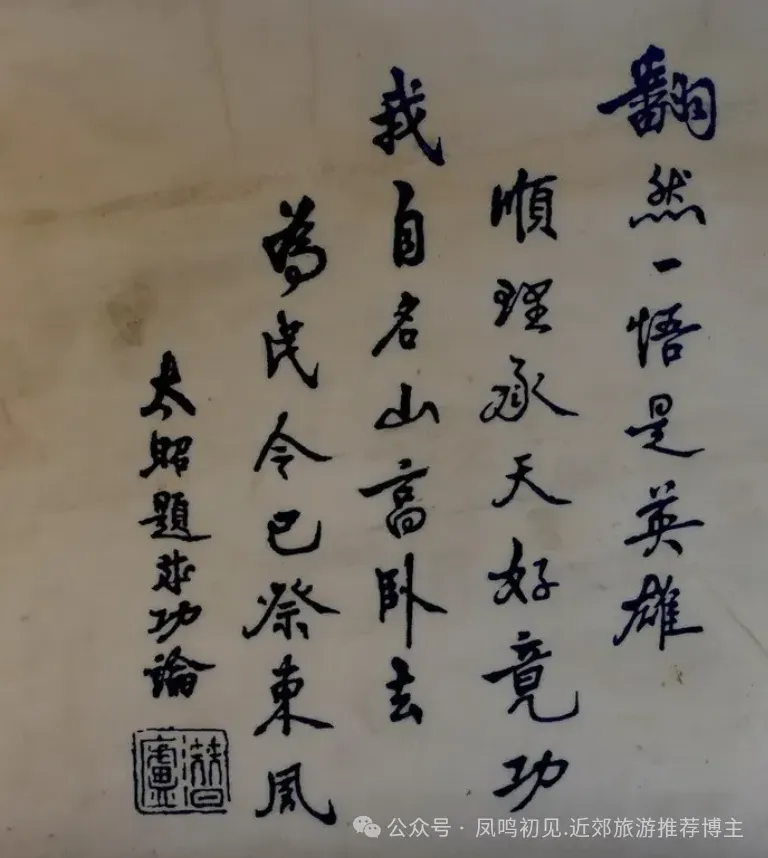 翻然一悟是英雄
順理承天好竟功
我自名山高臥去
為民今已祭東風
太昭題成功論
潛廬
公众号·凤鸣初见.近郊旅游推荐博主